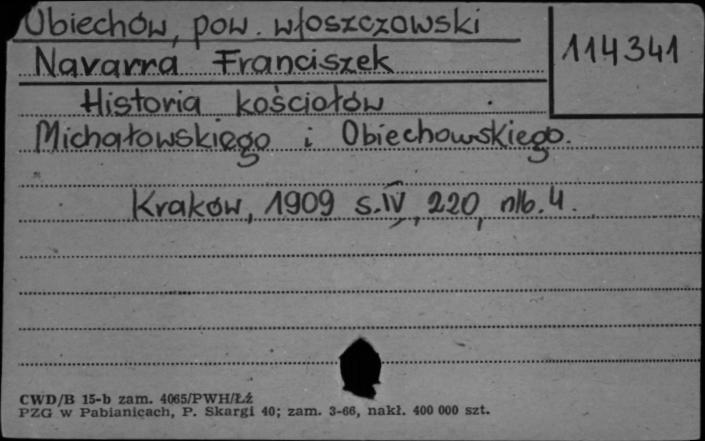 Obiechów, pow. włoszczowski
114341
Navarra Franciszek
Historia kościołów
Michałowskiego i Obiechowskiego.
Kraków, 1909 s.IV, 220, nlb. 4.
CWD/B 15-b zam. 4065/PWH/Łź
PZG w Pabianicach, P. Skargi 40; zam. 3-66, nakł. 400 000 szt.